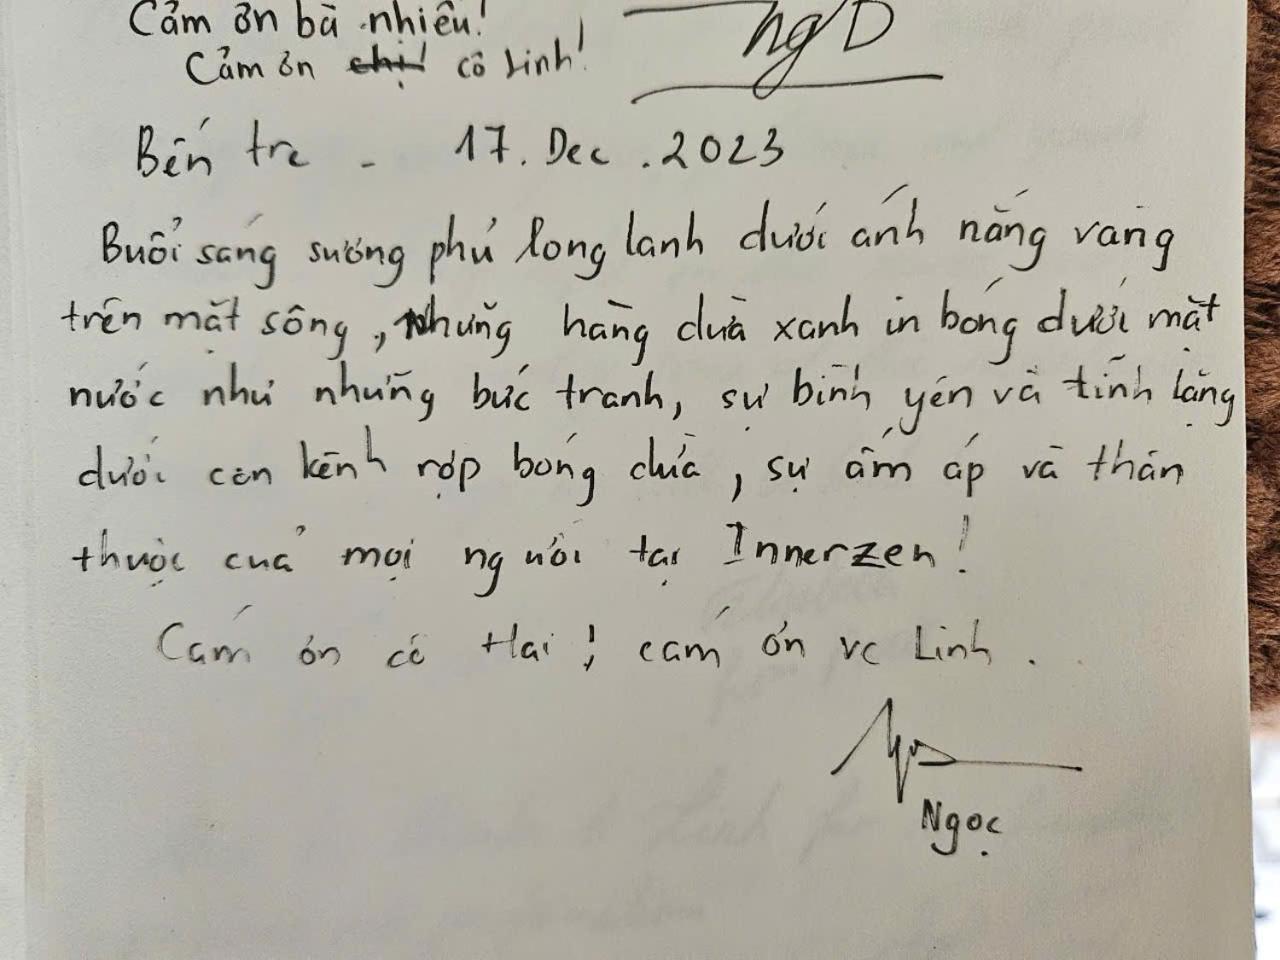 Cảm ơn bà nhiều!
Cảm ơn chị! cô Linh!
ngD
Bến tre - 17. Dec. 2023
Buổi sáng sương phủ long lanh dưới ánh nắng vàng
trên mặt sông, những hàng dừa xanh in bóng dưới mặt
nước như những bức tranh, sự bình yên và tĩnh lặng
dưới con kênh rợp bóng dừa, sự ấm áp và thân
thuộc của mọi người tại Innerzen!
Cám ơn cô Hai! cám ơn vc Linh.
Ngọc